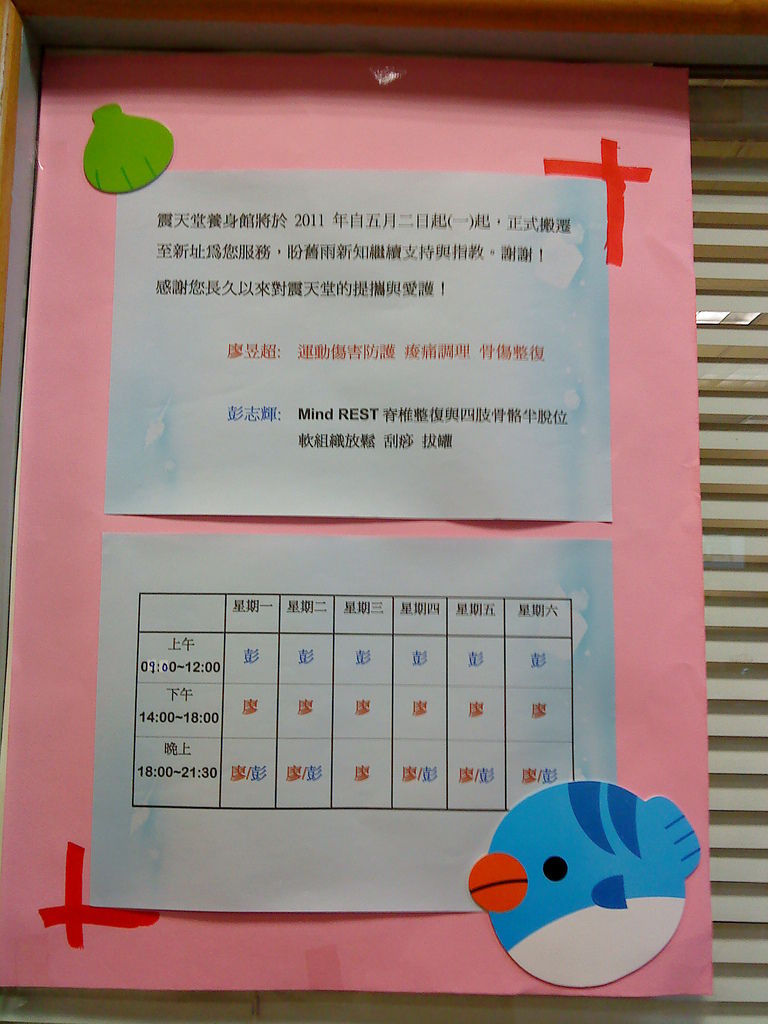 震天堂養身館將於 2011 年自五月二日起(一)起，正式搬遷
至新址為您服務，盼舊雨新知繼續支持與指教。謝謝！
感謝您長久以來對震天堂的提攜與愛護！
廖昱超: 運動傷害防護 痠痛調理 骨傷整復
彭志輝: Mind REST 脊椎整復與四肢骨骼半脫位
軟組織放鬆 刮痧 拔罐
星期一 星期二 星期三 星期四 星期五 星期六
上午
09:00~12:00 彭 彭 彭 彭 彭 彭
下午
14:00~18:00 廖 廖 廖 廖 廖 廖
晚上
18:00~21:30 廖/彭 廖/彭 廖 廖/彭 廖/彭 廖/彭